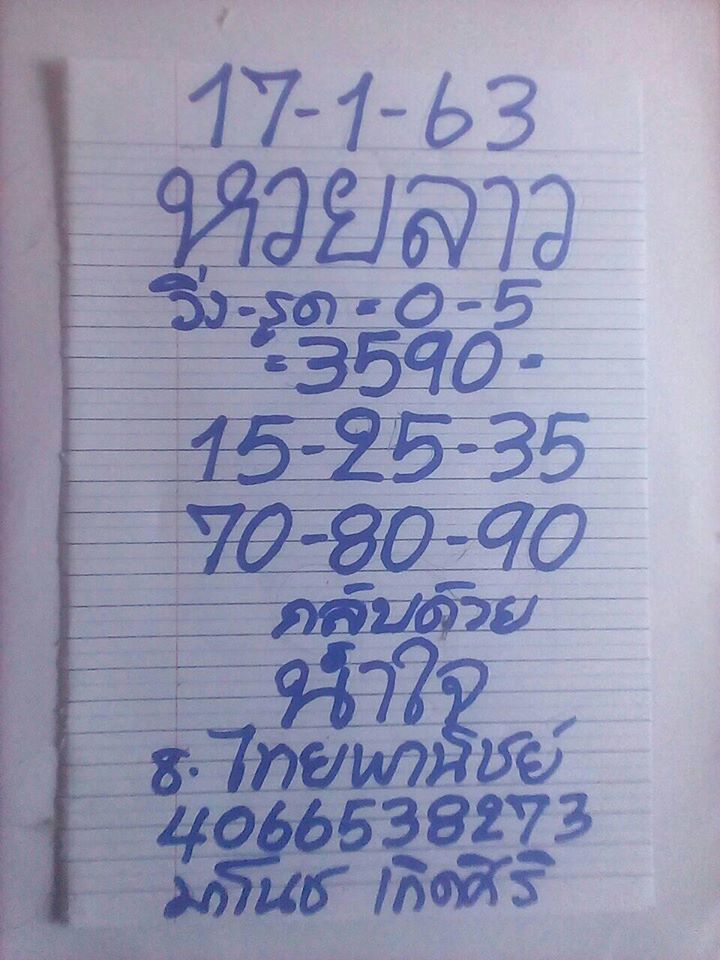 17-1-63
หวยลาว
วิ่ง-รูด=0-5
=3590-
15-25-35
70-80-90
กลับด้วย
น้ำใจ
ธ.ไทยพานิชย์
4066538273
มาโนช เกิดศิริ